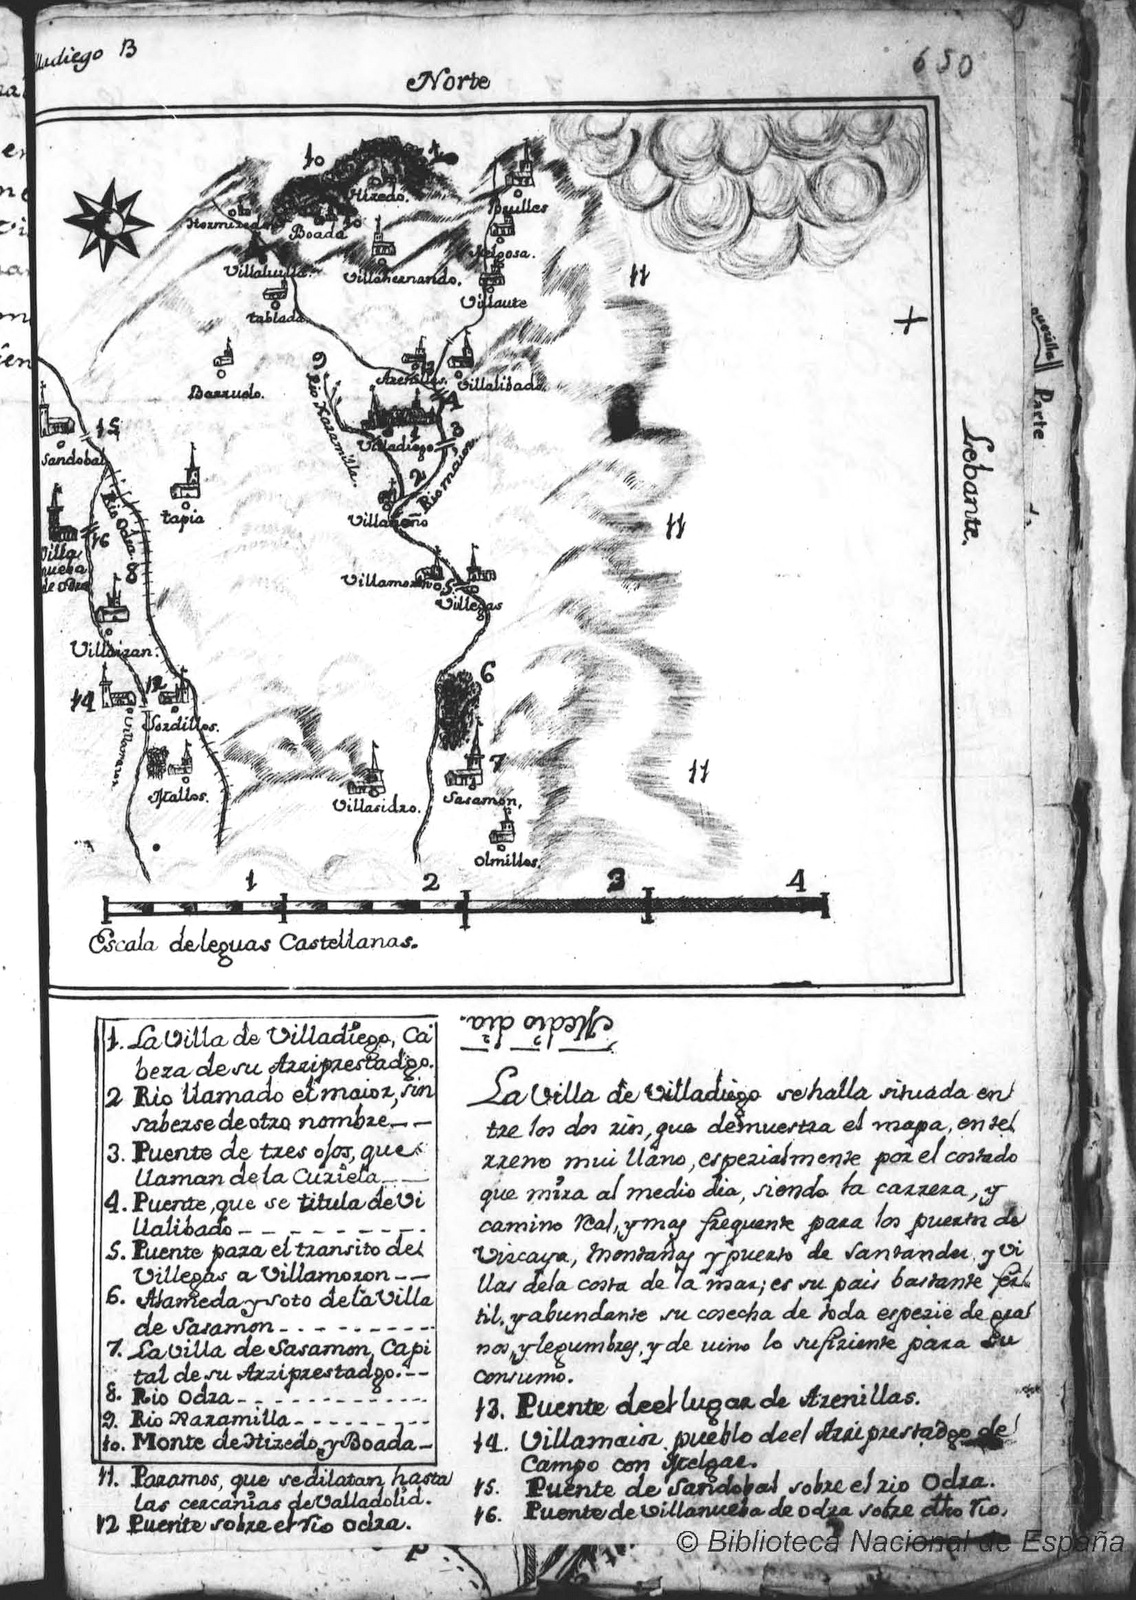 Villadiego B
650
Norte
10
1
Hizedo.
Hormizeda
Boada
10
Brulles
Melgosa.
Villaluilla.
Villahernando.
Villaute
tablada
11
Arenillas.
13
Villalibado
Barruelo.
9
Rio Karamilla.
4
1
Villadiego
3
2
Rio maior
Villanoño
Sandobal
15
tapia
Rio Odra.
16
Villa
nueba
de odra
8
11
Villamoron
5
Villegas
Villaizan.
14
12
Sordillos.
6
7
Villamaior
Hallos.
Villasidro.
Sasamon,
Olmillos.
11
Lebante.
Parte
1 2 3 4
Escala de leguas Castellanas.
Medio dia.
1. La Villa de Villadiego, Ca
beza de su Arziprestadgo.
2 Rio llamado el maior, sin
saberse de otro nombre__
3. Puente de tres ojos, que
llaman de la Curiela__
4. Puente, que se titula de Vi
llalibado - - - - - - -
5. Puente para el transito de
Villegas a Villamoron - -
6. Alameda y soto de la Villa
de Sasamon - - - - - - -
7. La Villa de Sasamon, Capi
tal de su Arziprestadgo. - -
8. Rio Odra - - - - - - -
9. Rio Karamilla - - - - - -
10. Monte de Hizedo, y Boada -
11. Paramos, que se dilatan hasta
las cercanias de Valladolid.
12 Puente sobre el rio Odra.
La Villa de Villadiego se halla situada en
tre los dos rios, que demuestra el mapa, en te
rreno mui llano, espezialmente por el costado
que mira al medio dia, siendo la carrera, y
camino Real, y mas frequente para los puertos de
Vizcaya, Montañas y puerto de Santander y Vi
llas de la costa de la mar; es su pais bastante fer
til, y abundante su cosecha de toda espezie de gra
nos, y legumbres, y de vino lo sufiziente para su
consumo.
13. Puente de el lugar de Arenillas.
14. Villamaior pueblo de el Arziprestadgo de
Campo con Melgar.
15. Puente de Sandobal sobre el rio Odra.
16. Puente de Villanueba de Odra sobre dho rio.
© Biblioteca Nacional de España